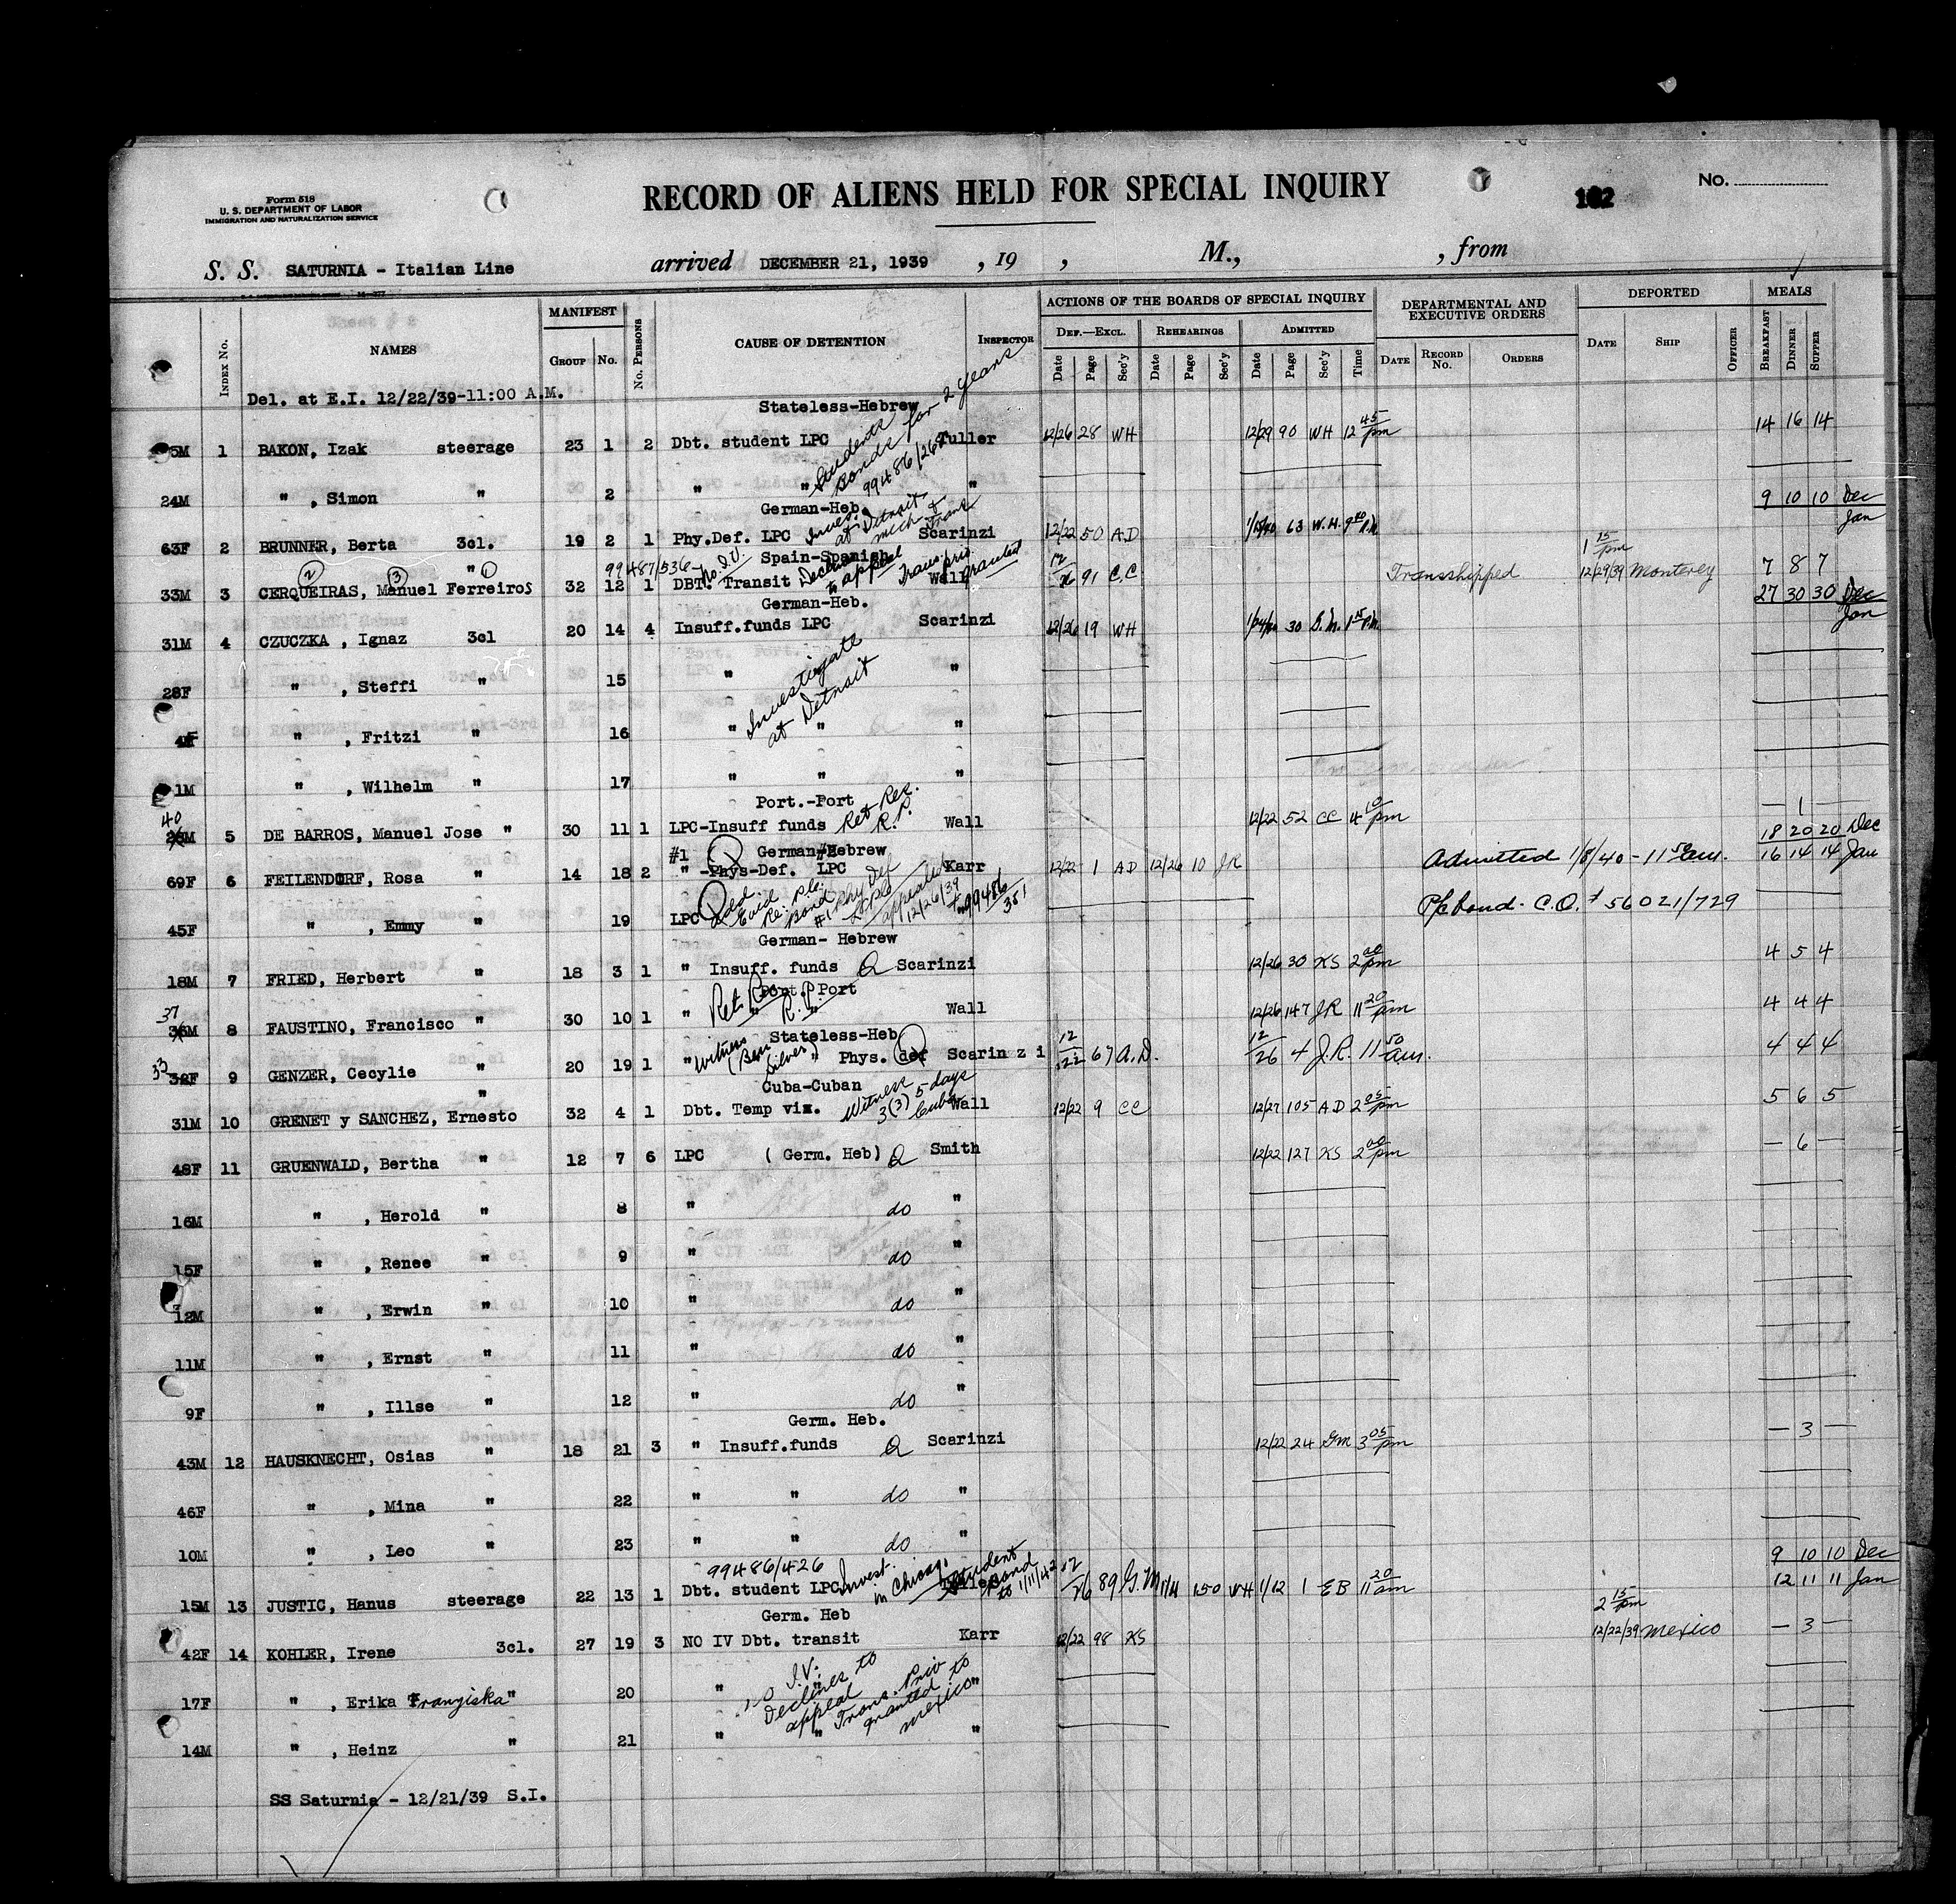 Form 518
U. S. DEPARTMENT OF LABOR
IMMIGRATION AND NATURALIZATION SERVICE
RECORD OF ALIENS HELD FOR SPECIAL INQUIRY
No.
S. S. SATURNIA - Italian Line arrived DECEMBER 21, 1939 , 19 , M., , from
INDEX No. NAMES MANIFEST GROUP No. No. PERSONS CAUSE OF DETENTION INSPECTOR ACTIONS OF THE BOARDS OF SPECIAL INQUIRY DEF.—EXCL. Date Page Sec'y REHEARINGS Date Page Sec'y ADMITTED Date Page Sec'y Time DEPARTMENTAL AND EXECUTIVE ORDERS DATE RECORD No. ORDERS DEPORTED DATE SHIP OFFICER MEALS BREAKFAST DINNER SUPPER
Del. at E.I. 12/22/39-11:00 A.M.
Stateless-Hebrew
5M 1 BAKON, Izak steerage 23 1 2 Dbt. student LPC Tuller 12/26 28 WH 12/29 90 WH 12 45 pm 14 16 14
Students Bonds for 2 years
24M " , Simon " 2 " " "
German-Heb. 9 10 10 Dec
Jan
63F 2 BRUNNER, Berta 3cl. 19 2 1 Phy.Def. LPC Scarinzi 12/22 50 AD 63 W.H.
Invest. at Detroit Mich
99487/536 No I.V. Spain-Spanish
33M 3 CERQUEIRAS, Manuel Ferreiros " 32 12 1 DBT. Transit Wall 12/26 91 C.C Transshipped 1 15 pm 12/29/39 Monterey 7 8 7
Declines to appeal Trans. priv. granted
German-Heb. 27 30 30 Dec
Jan
31M 4 CZUCZKA , Ignaz 3cl 20 14 4 Insuff.funds LPC Scarinzi 12/26 19 WH 30
28F " , Steffi " 15 " "
Investigate at Detroit
4F " , Fritzi " 16 " " "
1M " , Wilhelm " 17 " " "
Port.-Port
40 DE BARROS, Manuel Jose " 5 30 11 1 LPC-Insuff funds Ret Res. R.P. Wall 12/22 52 CC 4 10 pm — 1 —
#1 German-Hebrew 18 20 20 Dec
69F 6 FEILENDORF, Rosa " 14 18 2 " -Phys-Def. LPC Karr 12/22 1 AD 12/26 10 JR Admitted 1/8/40 - 11 50 am. 16 14 14 Jan
45F " , Emmy " 19 LPC P/c bond. C.O. # 56021/729
German- Hebrew
18M 7 FRIED, Herbert " 18 3 1 " Insuff. funds Scarinzi 12/26 30 KS 2 00 pm 4 5 4
Port. Port
37 FAUSTINO, Francisco " 8 30 10 1 " Ret. Res. R.P. Wall 12/26 147 JR 11 20 pm 4 4 4
Stateless-Heb
33 GENZER, Cecylie " 9 20 19 1 " Witness (Ben Silver) Phys. def Scarinzi 12/22 67 A.D. 12/26 4 J.R. 11 50 am. 4 4 4
Cuba-Cuban
31M 10 GRENET y SANCHEZ, Ernesto " 32 4 1 Dbt. Temp vis. Witness 3(3) 5 days Cuba Wall 12/22 9 CC 12/27 105 AD 2 05 pm 5 6 5
48F 11 GRUENWALD, Bertha " 12 7 6 LPC ( Germ. Heb) Smith 12/22 127 KS 2 00 pm — 6 —
16M " , Herold " 8 " do "
15F " , Renee " 9 " do "
12M " , Erwin " 10 " do "
11M " , Ernst " 11 " do "
9F " , Illse " 12 " do "
Germ. Heb.
43M 12 HAUSKNECHT, Osias " 18 21 3 " Insuff.funds Scarinzi 12/22 24 GM 3 05 pm — 3 —
46F " , Mina " 22 " " do "
10M " , Leo " 23 " " do "
99486/426 9 10 10 Dec
15M 13 JUSTIC, Hanus steerage 22 13 1 Dbt. student LPC Invest. in Chicago Student Bond to 1/11/42 12/26 89 G.M 1/11 150 WH 1/12 1 EB 11 20 am 12 11 11 Jan
Germ. Heb
42F 14 KOHLER, Irene 3cl. 27 19 3 NO IV Dbt. transit Karr 12/22 98 KS 2 15 pm 12/22/39 Mexico — 3 —
17F " , Erika Franziska " 20 " "
No I.V. Declines to appeal Trans. Priv granted to Mexico
14M " , Heinz " 21 " " "
SS Saturnia - 12/21/39 S.I.